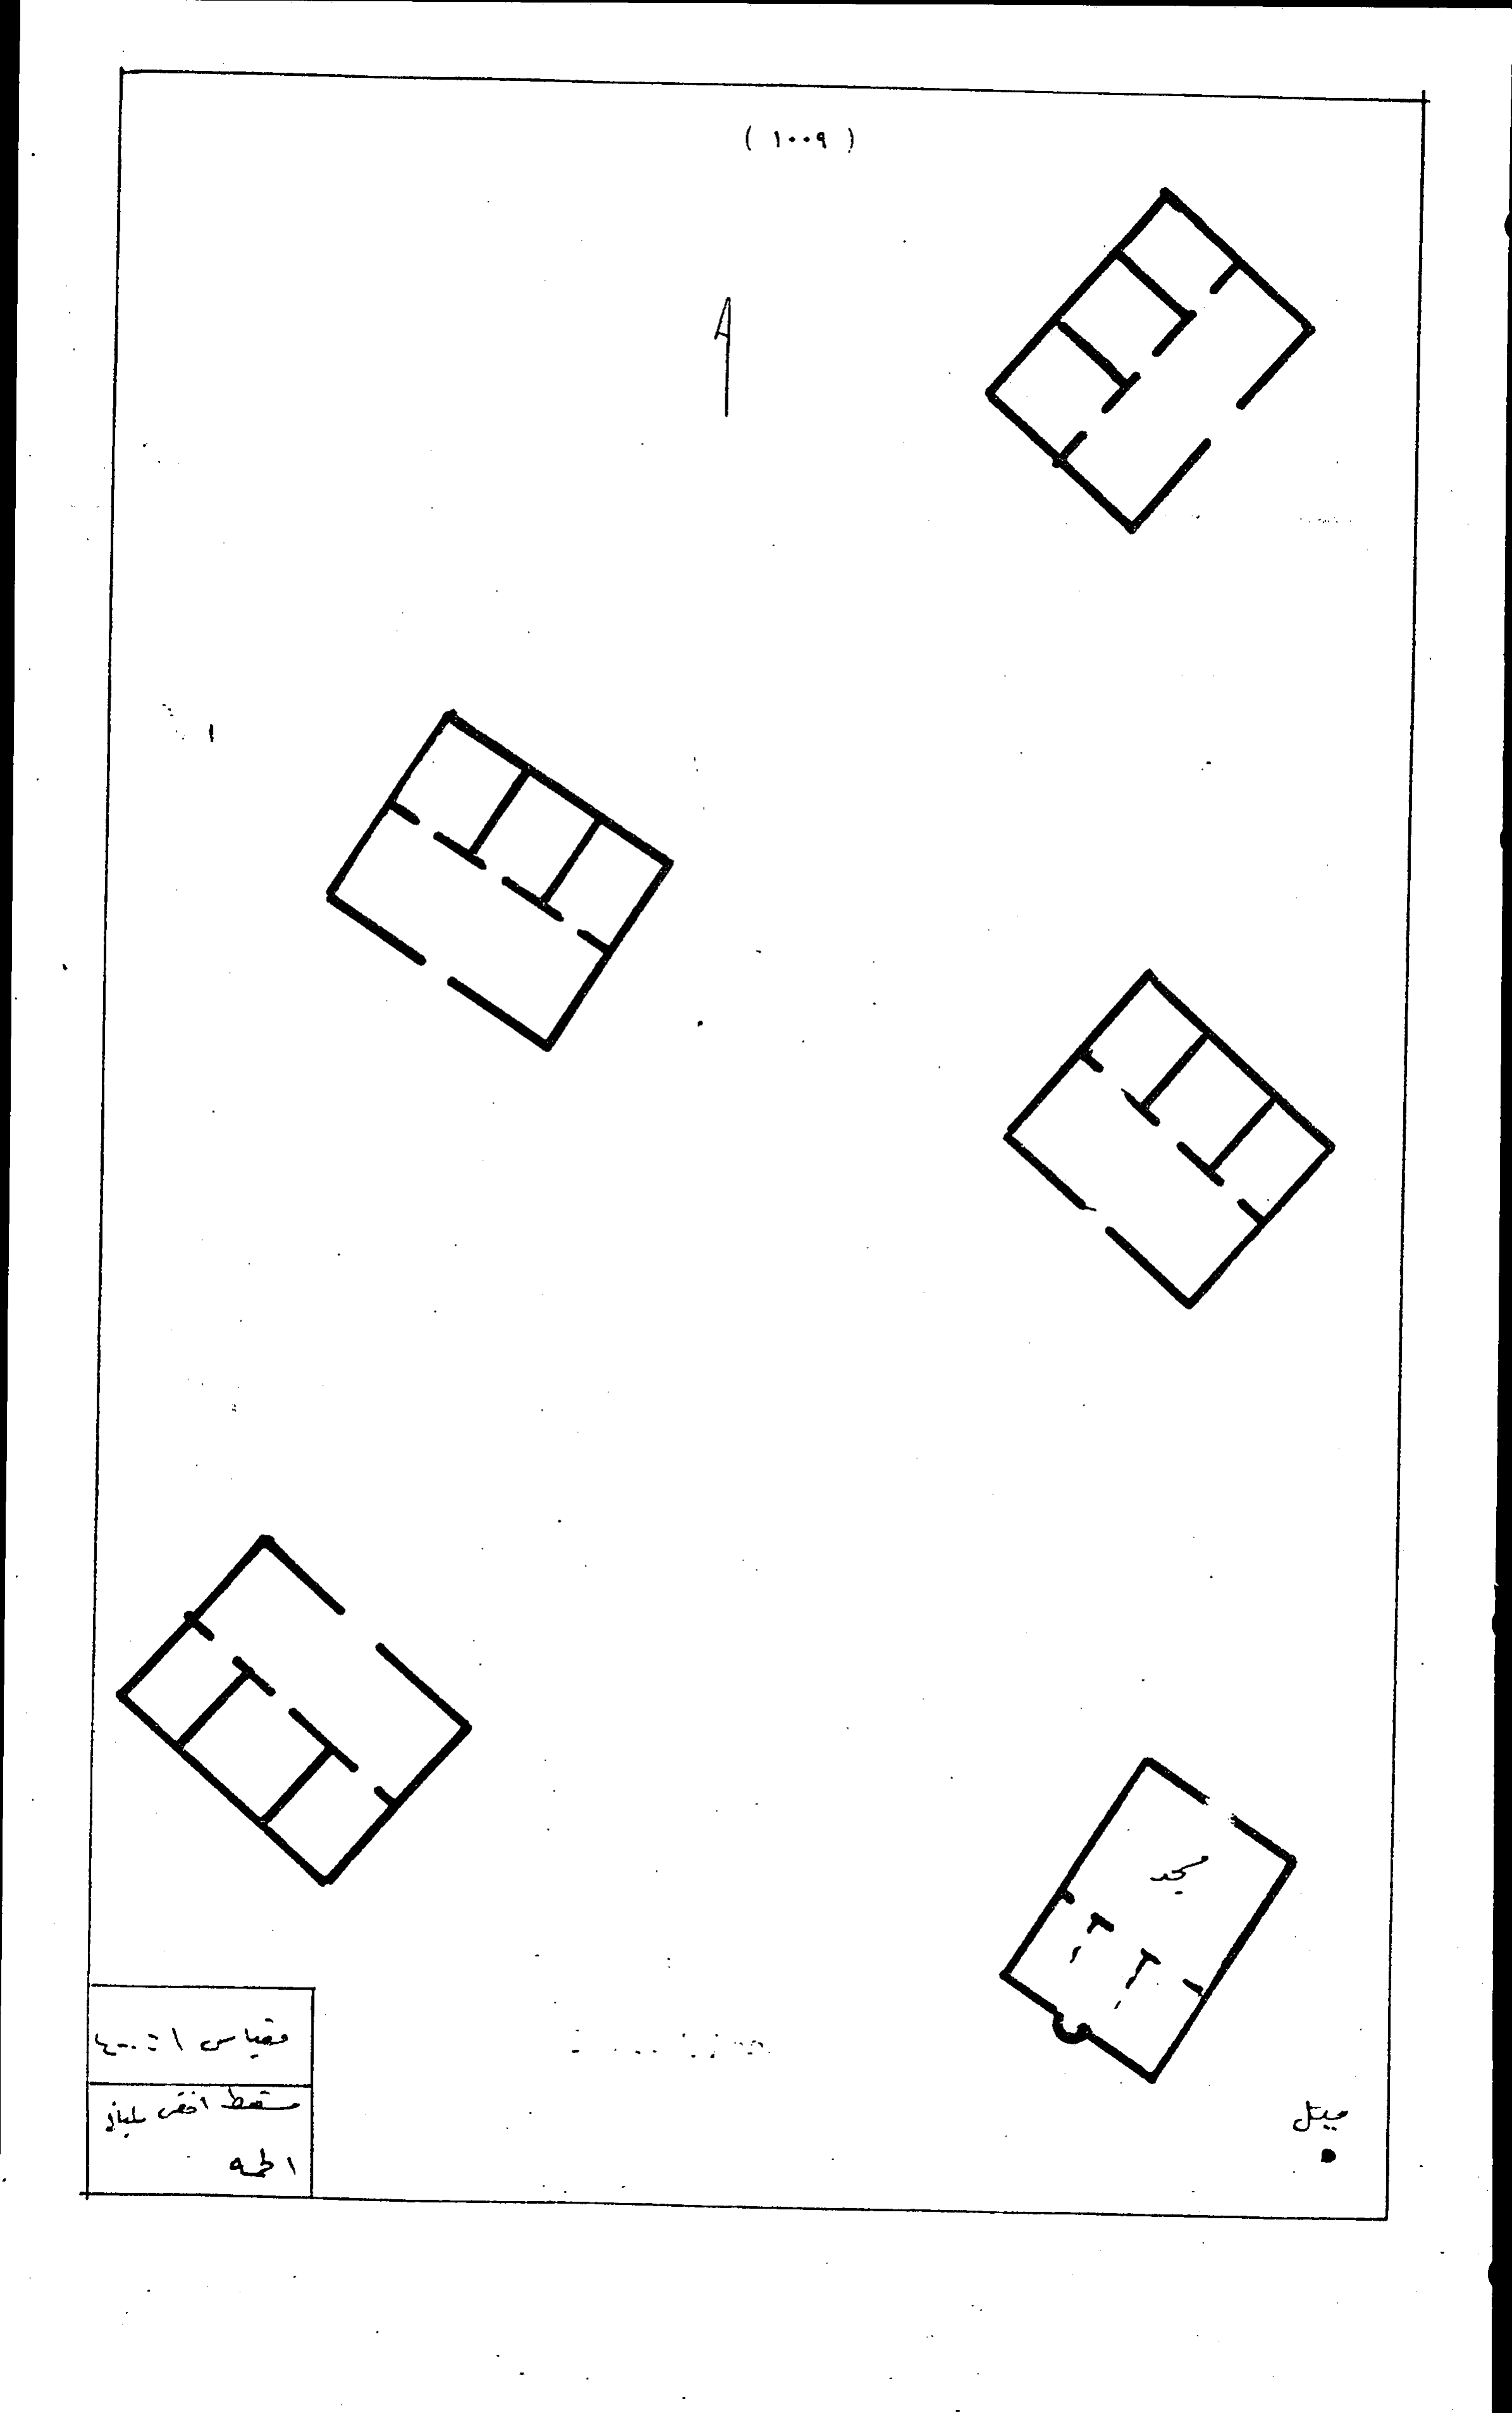 ( ١٠٠٩ )
مسجد
ميل
مقياس ١ : ٤٠٠
مسقط افقى لمبانى
الحمه